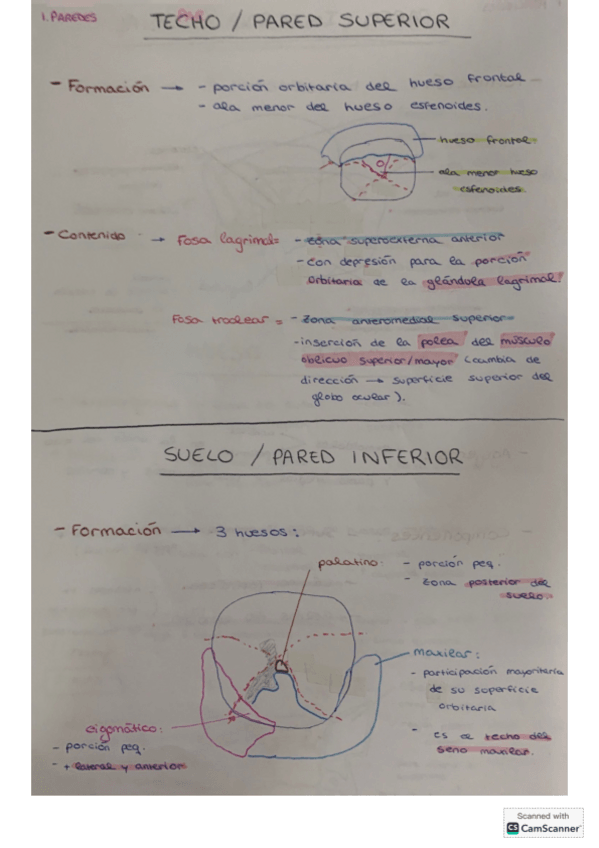 1. PAREDES
TECHO / PARED SUPERIOR
- Formación → - porción orbitaria del hueso frontal
- ala menor del hueso esfenoides.
hueso frontal
ala menor hueso
esfenoides.
- Contenido → Fosa lagrimal = - zona superoexterna anterior
- con depresión para la porción
orbitaria de la glándula lagrimal.
Fosa troclear = - Zona anteromedial superior
- inserción de la polea del músculo
oblicuo superior/mayor (cambia de
dirección → superficie superior del
globo ocular).
SUELO / PARED INFERIOR
- Formación → 3 huesos:
palatino: - porción peq.
- zona posterior del
suelo.
maxilar:
- participación mayoritaria
de su superficie
orbitaria
- es el techo del
seno maxilar.
cigomático:
- porción peq.
- + lateral y anterior
Scanned with
CS CamScanner